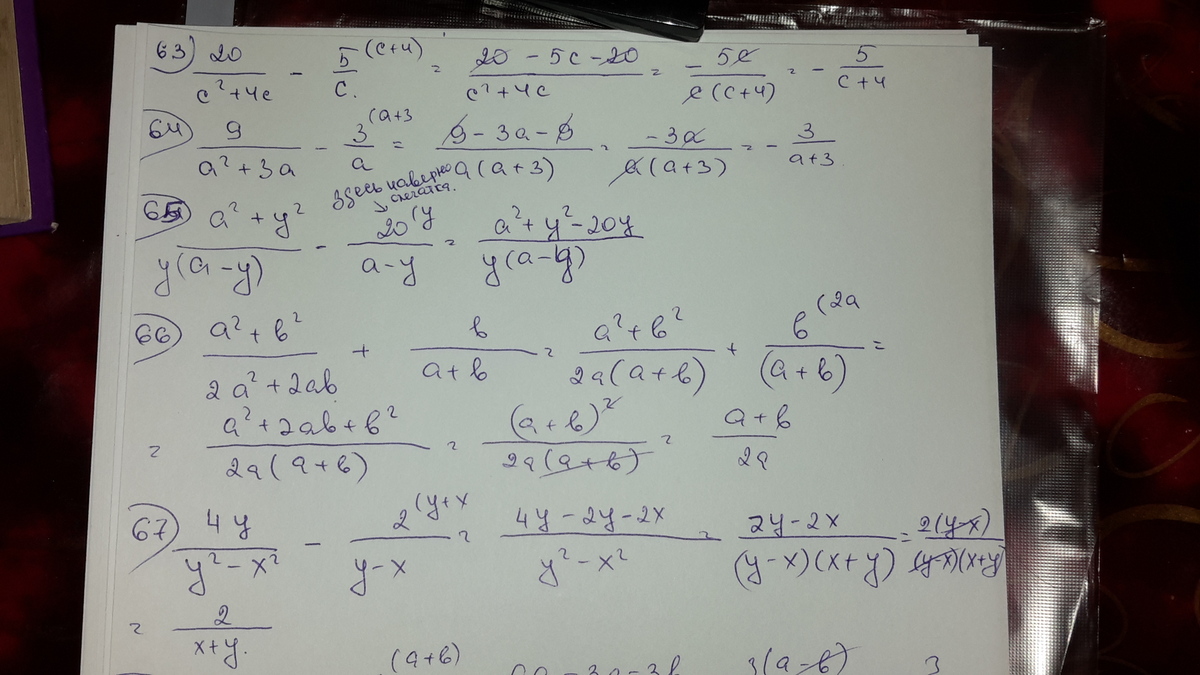 63) 20/(c²+4c) - 5/c. (c+4) = (20 - 5c - 20)/(c²+4c) = - 5c/(c(c+4)) = - 5/(c+4)
64) 9/(a²+3a) - 3/a (a+3 = (9 - 3a - 9)/(a(a+3)) = -3a/(a(a+3)) = - 3/(a+3)
Здесь наверно
опечатка.
65) (a²+y²)/(y(a-y)) - 20/(a-y) (y = (a²+y²-20y)/(y(a-y))
66) (a²+b²)/(2a²+2ab) + b/(a+b) = (a²+b²)/(2a(a+b)) + b/(a+b) (2a =
= (a²+2ab+b²)/(2a(a+b)) = (a+b)²/(2a(a+b)) = (a+b)/2a
67) 4y/(y²-x²) - 2/(y-x) (y+x = (4y-2y-2x)/(y²-x²) = (2y-2x)/((y-x)(x+y)) = 2(y-x)/((y-x)(x+y))
= 2/(x+y).
(a+b) 3(a-b) 3